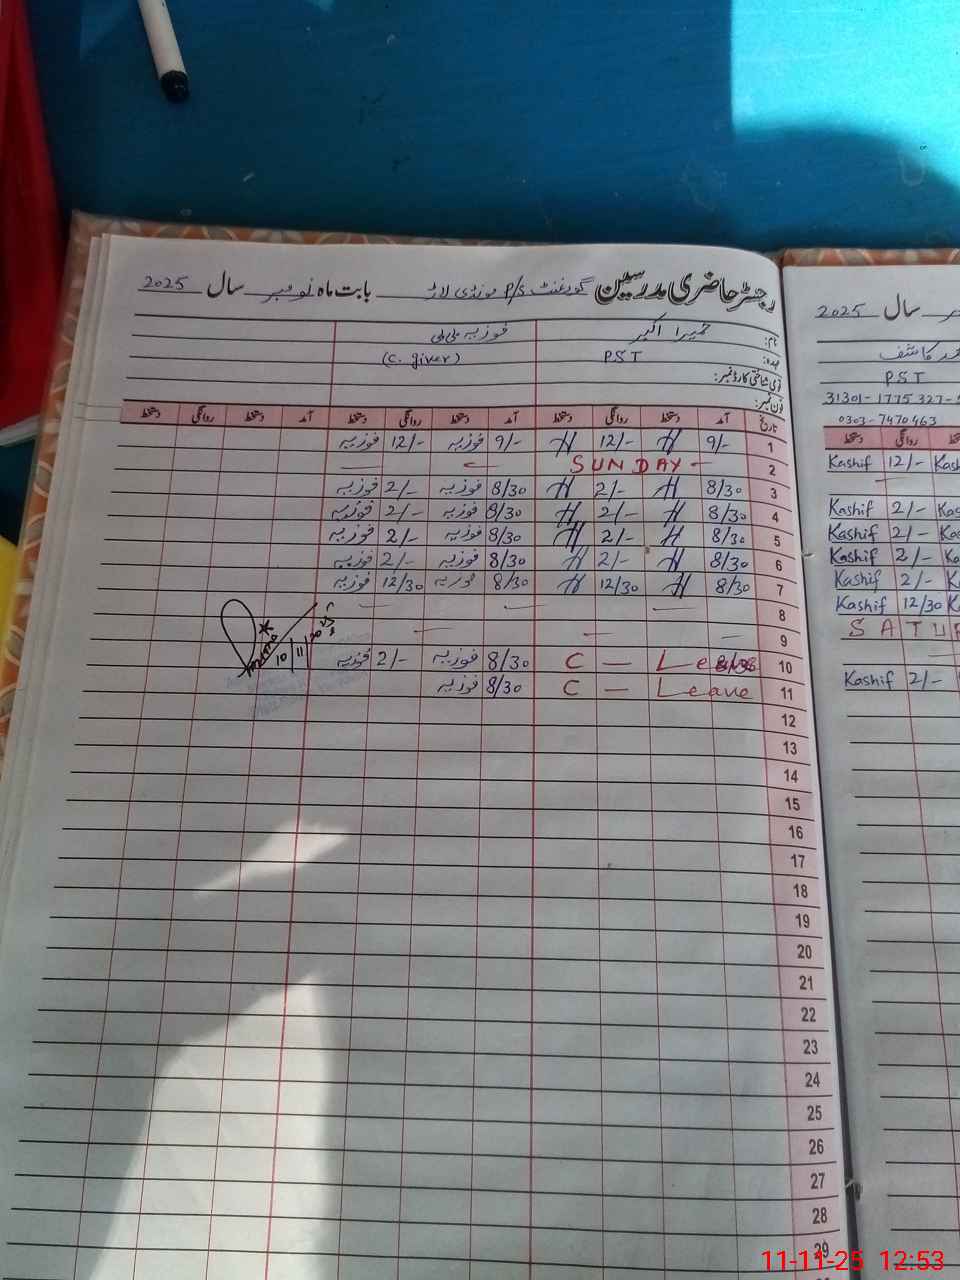 رجسٹر حاضری مدرسین گورنمنٹ P/S موندی لاڑ بابت ماہ نومبر سال 2025
نام: حمیرا اکبر فوزیہ بی بی
عہدہ: PST (C. giver)
قومی شناختی کارڈ نمبر:
فون نمبر:
تاریخ آمد دستخط روانگی دستخط آمد دستخط روانگی دستخط آمد دستخط روانگی دستخط
1 9/- H 12/- H 9/- فوزیہ 12/- فوزیہ
2 SUNDAY
3 8/30 H 2/- H 8/30 فوزیہ 2/- فوزیہ
4 8/30 H 2/- H 8/30 فوزیہ 2/- فوزیہ
5 8/30 H 2/- H 8/30 فوزیہ 2/- فوزیہ
6 8/30 H 2/- H 8/30 فوزیہ 2/- فوزیہ
7 8/30 H 12/30 H 8/30 فوزیہ 12/30 فوزیہ
8
9
10 C — Leave 8/30 فوزیہ 2/- فوزیہ
11 C — Leave 8/30 فوزیہ
10/11/2025
12
13
14
15
16
17
18
19
20
21
22
23
24
25
26
27
28
29
سال 2025
کاشف
PST
31301-1775327-
0303-7470463
دستخط روانگی
Kashif 12/- Kash
Kashif 2/-
Kashif 2/-
Kashif 2/-
Kashif 2/-
Kashif 12/30
SATU
Kashif 2/-
11-11-25 12:53